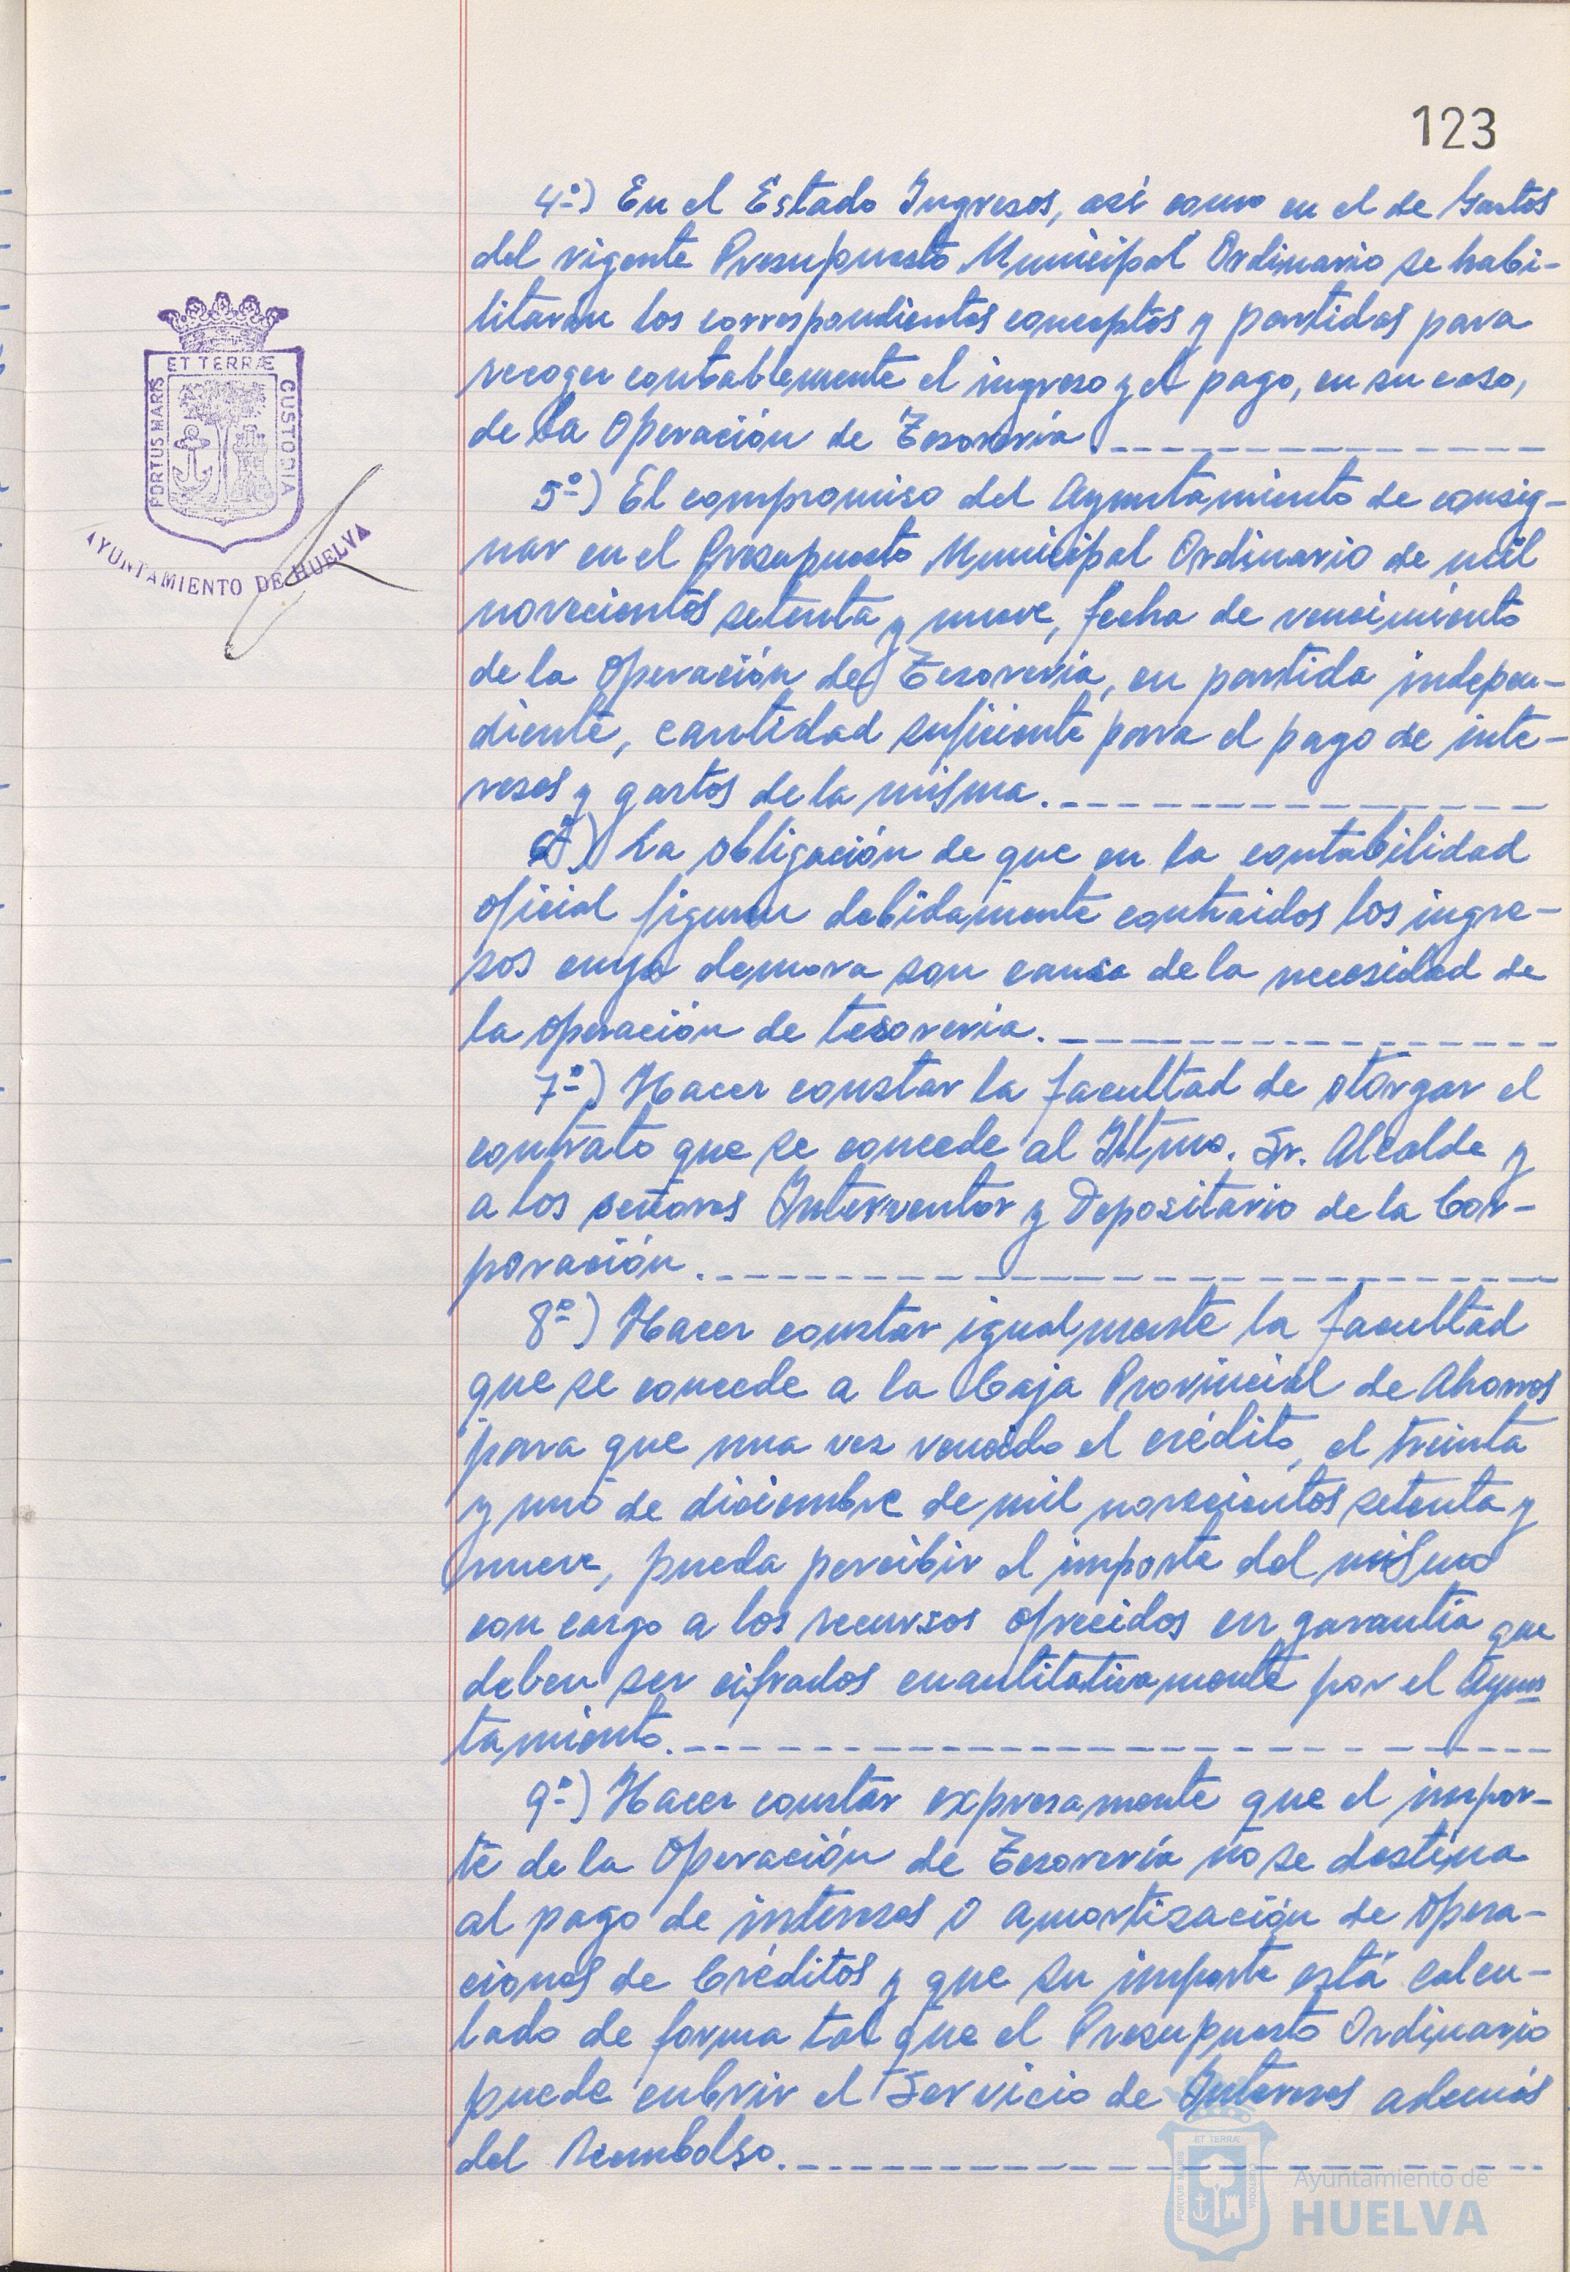 123
4º) En el Estado Ingresos, así como en el de Gastos
del vigente Presupuesto Municipal Ordinario se habi-
litarán los correspondientes conceptos y partidas para
recoger contablemente el ingreso y el pago, en su caso,
de la Operación de Tesorería
5º) El compromiso del Ayuntamiento de consig-
nar en el Presupuesto Municipal Ordinario de mil
novecientos setenta y nueve, fecha de vencimiento
de la Operación de Tesorería, en partida indepen-
diente, cantidad suficiente para el pago de inte-
reses y gastos de la misma.
6º) La obligación de que en la contabilidad
oficial figuren debidamente contraidos los ingre-
sos cuya demora son causa de la necesidad de
la operación de tesoreria.
7º) Hacer constar la facultad de otorgar el
contrato que se concede al Iltmo. Sr. Alcalde y
a los señores Interventor y Depositario de la Cor-
poración.
8º) Hacer constar igualmente la facultad
que se concede a la Caja Provincial de Ahorros
para que una vez vencido el crédito, el treinta
y uno de diciembre de mil novecientos setenta y
nueve, pueda percibir el importe del mismo
con cargo a los recursos ofrecidos en garantía que
deben ser cifrados cuantitativamente por el Ayun
tamiento.
9º) Hacer constar expresamente que el impor-
te de la Operación de Tesorería no se destina
al pago de intereses o amortización de opera-
ciones de Créditos y que su importe está calcu-
lado de forma tal que el Presupuesto Ordinario
puede cubrir el Servicio de Intereses además
del Reembolso.
PORTUS MARIS
ET TERRÆ
CUSTODIA
AYUNTAMIENTO DE HUELVA
PORTUS MARIS
ET TERRÆ
CUSTODIA
Ayuntamiento de
HUELVA